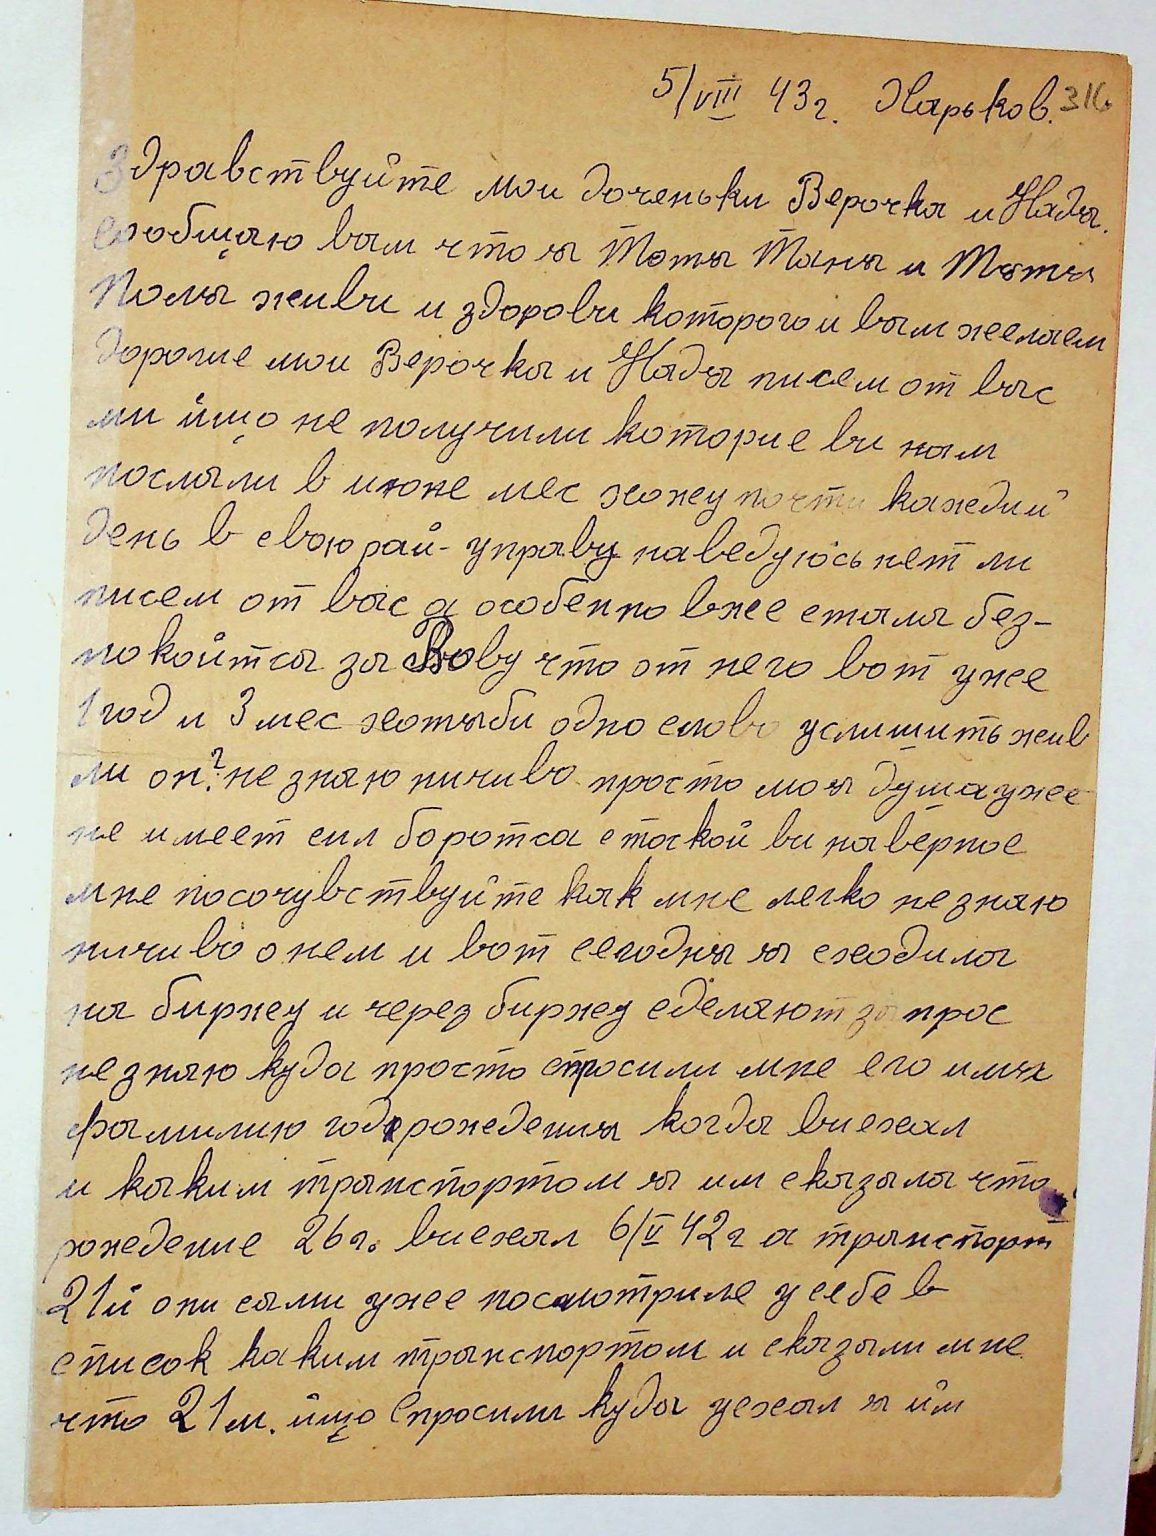 5/VIII 43 г. Харьков. 316
Здравствуйте мои доченьки Верочка и Надя.
сообщаю вам что я Тотя Таня и Тятя
Поля живи и здорови которого и вам желаем
дорогие мои Верочка и Надя писем от вас
ми йщо не получили которие ви нам
послали в июне мес хожу почти каждий
день в свою рай-управу наведуюсь нет ли
писем от вас а особенно вже стала без-
покойтса за Вову что от него вот уже
1 год и 3 мес хотяби одно слово услишить жив
ли он? не знаю ничиво просто моя душа уже
не имеет сил боротса стоской ви наверное
мне посочувствуйте как мне легко незнаю
ничиво о нем и вот сегодня я сходила
на биржу и через биржу сделают запрос
незнаю куда просто спросили мне его имя
фамилию год рождения когда виехал
и каким транспортом я им сказала что
рождение 26 г. виехал 6/V 42 г а транспорт
21й они сами уже посмотриле у себе в
список каким транспортом и сказали мне
что 21 м. йщо спросили куда уехал я йм